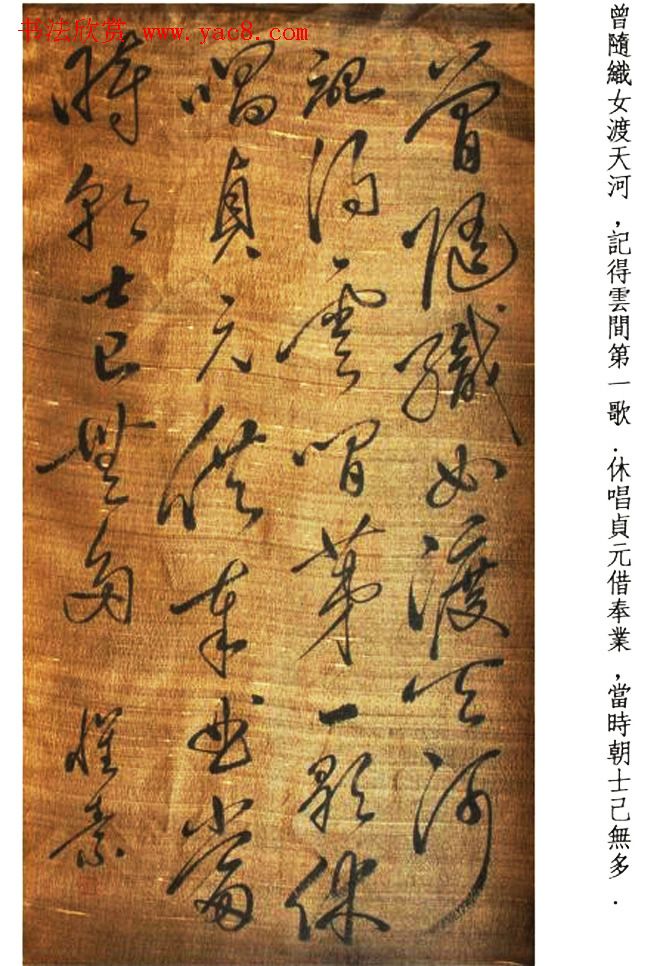 书法欣赏 www.yac8.com
曾隨織女渡天河,記得雲間第一歌.休唱貞元借奉業,當時朝士己無多.
曾隨織女渡天河
記得雲間第一歌休
唱貞元供奉曲當
時朝士已無多 懷素